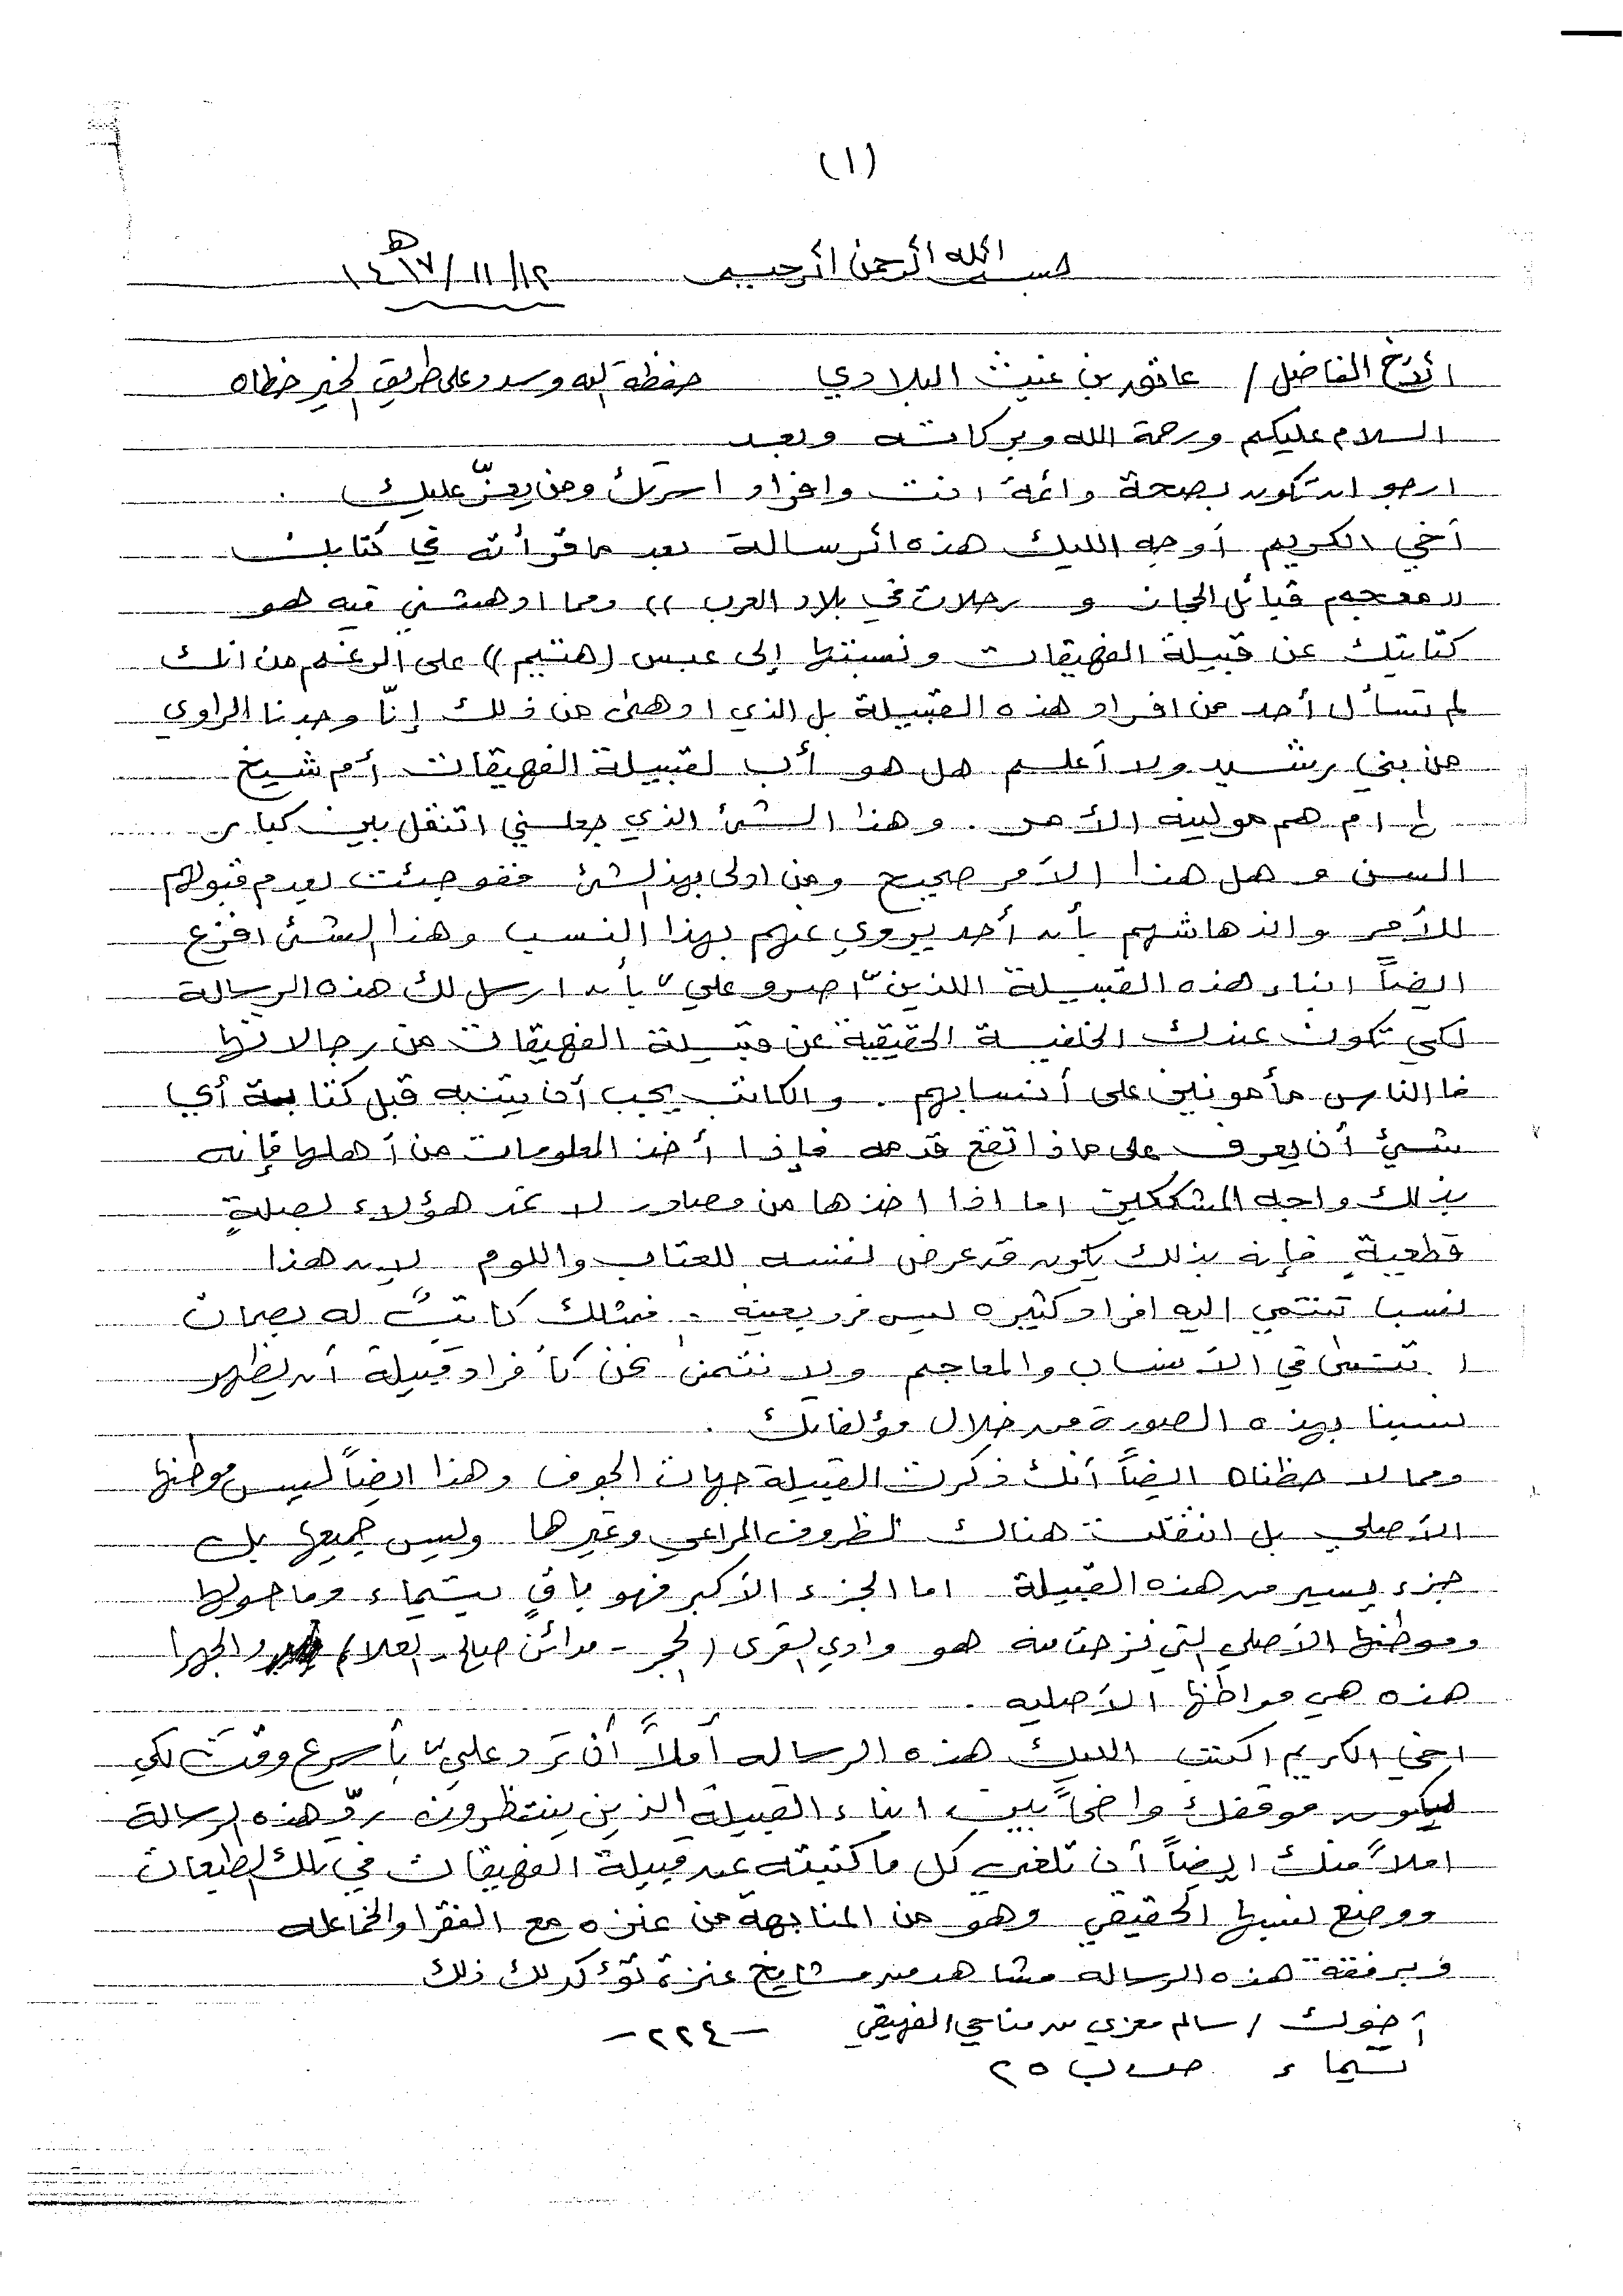 (١)
بسم الله الرحمن الرحيم ١٤١٧/١١/١٢ هـ
الأخ الفاضل / عاتق بن غيث البلادي حفظه الله وسدد على طريق الخير خطاه
السلام عليكم ورحمة الله وبركاته وبعد
ارجو ان تكون بصحة دائمة انت وافراد اسرتك ومن يعزّ عليك .
أخي الكريم أوجه الليك هذه الرسالة بعد ما قرأته في كتابك
((معجم قبائل الحجاز و رحلات في بلاد العرب)) ومما ادهشني فيه هو
كتابتك عن قبيلة الفهيقات ونسبتها إلى عبس (هتيم)) على الرغم من انك
لم تسأل أحد من افراد هذه القبيلة بل الذي ادهش من ذلك إنّا وجدنا الراوي
من بني رشيد ولا أعلم هل هو أب لقبيلة الفهيقات أم شيخ
ام هم مولينه الأمر . وهذا الشئ الذي جعلني اتنقل بين كبار
السن و هل هذا الأمر صحيح ومن اولى بهذا لشئ ففوجئت بعدم قبولهم
للأمر واندهاشهم بأن أحد يروي عنهم بهذا النسب وهذا الشئ افزع
ايضاً ابناء هذه القبيلة اللذين أصرو علي بأن ارسل لك هذه الرسالة
لكي تكون عندك الخلفية الحقيقية عن قبيلة الفهيقات من رجالاتها
فا الناس مأمونين على أنسابهم . والكاتب يجب أن يتنبه قبل كتابة أي
شئ أن يعرف على ماذا تقع قدمه فإذا أخذ المعلومات من أهلها فإنه
بذلك واجه المشككين اما اذا اخذها من مصادر لا تمد هؤلاء لصلةٍ
قطعيةٍ فإنه بذلك يكون قد عرض نفسه للعتاب واللوم لإن هذا
نسبا تنتمي اليه افراد كثيره ليس فرد بعينه . فمثلك كاتبٌ له بصمات
لا تنسى في الأنساب والمعاجم ولا نتمنى نحن كأفراد قبيلة أن يظهر
نسبنا بهذه الصورة من خلال مؤلفاتك .
ومما لاحظناه ايضاً أنك ذكرت القبيلة جهات الجوف وهذا ايضاً ليس موطنها
الأصلي بل انتقلت هناك لظروف المراعي وغيرها وليس جميعها بل
جزء يسير من هذه القبيلة اما الجزء الأكبر فهو باقٍ بتيماء وما حولها
وموطنها الأصلي لتي نزحت منه هو وادي القرى (الحجر - مدائن صالح - العلا) والجهرا
هذه هي مواطنها الأصليه .
اخي الكريم اكتب الليك هذه الرساله أملاً أن ترد علي بأسرع وقت لكي
ليكون موقفك واضحاً بين ابناء القبيلة الذين ينتظرون ردّ هذه الرسالة
املاً منك ايضاً أن تلغي كل ما كتبته عن قبيلة الفهيقات في تلك الطبعات
ووضع نسبها الحقيقي وهو من المنابهة من عنزه مع الفقرا والخماعله
وبرفقة هذه الرساله مشاهد من مشايخ عنزة تؤكد لك ذلك
أخوك / سالم معزي بن مناحي الفهيقي - ٢٢٤ -
تيماء ص ب ٢٥